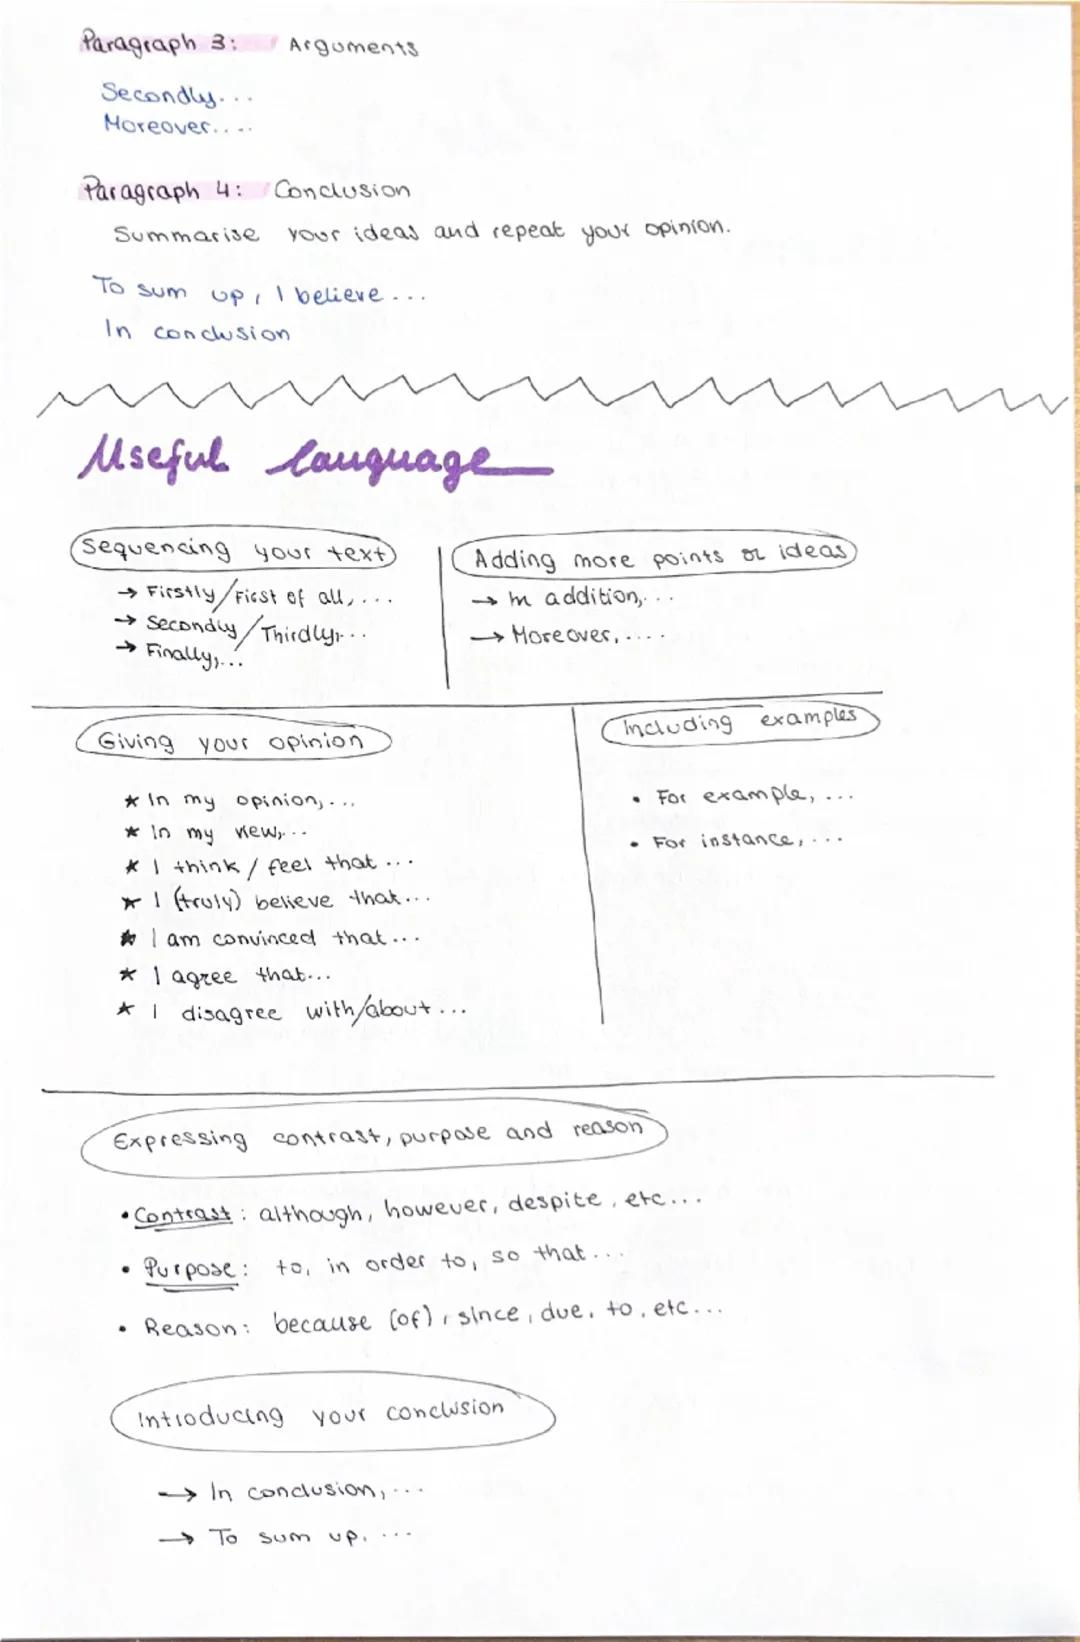 Paragraph 3: Arguments
Secondly...
Moreover....
Paragraph 4: Conclusion
Summarise your ideas and repeat your opinion.
To sum up, I believe...
In conclusion
Useful language
Sequencing your text
→ Firstly/First of all,...
→ Secondly/Thirdly,...
→ Finally,...
Adding more points or ideas
→ In addition,...
→ Moreover,....
Giving your opinion
* In my opinion,...
* In my view,...
* I think / feel that ...
* I (truly) believe that...
* I am convinced that...
* I agree that...
* I disagree with/about...
Including examples
• For example, ...
• For instance, ...
Expressing contrast, purpose and reason
• Contrast: although, however, despite, etc...
• Purpose: to, in order to, so that...
• Reason: because (of), since, due, to, etc...
Introducing your conclusion
→ In conclusion,...
→ To sum up, ...